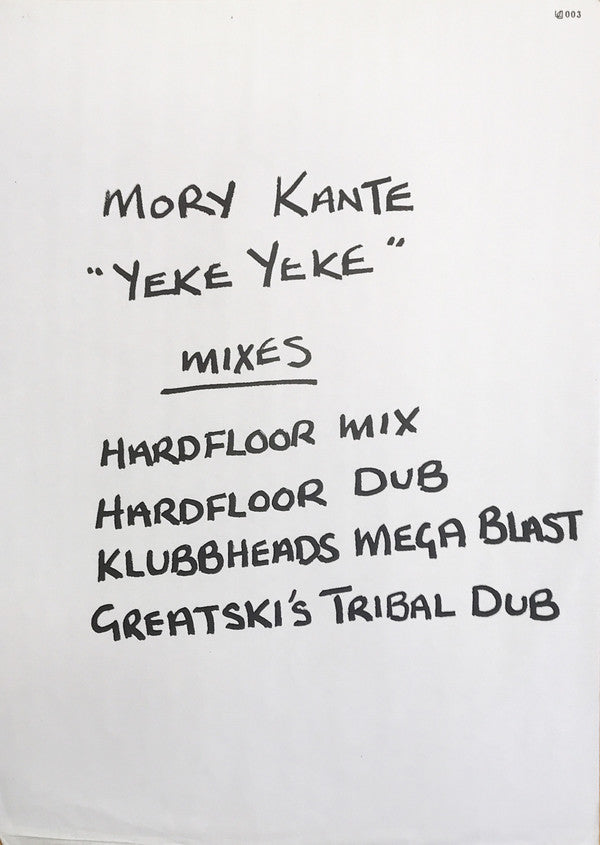 003
MORY KANTE
"YEKE YEKE"
MIXES
HARDFLOOR MIX
HARDFLOOR DUB
KLUBBHEADS MEGA BLAST
GREATSKI'S TRIBAL DUB